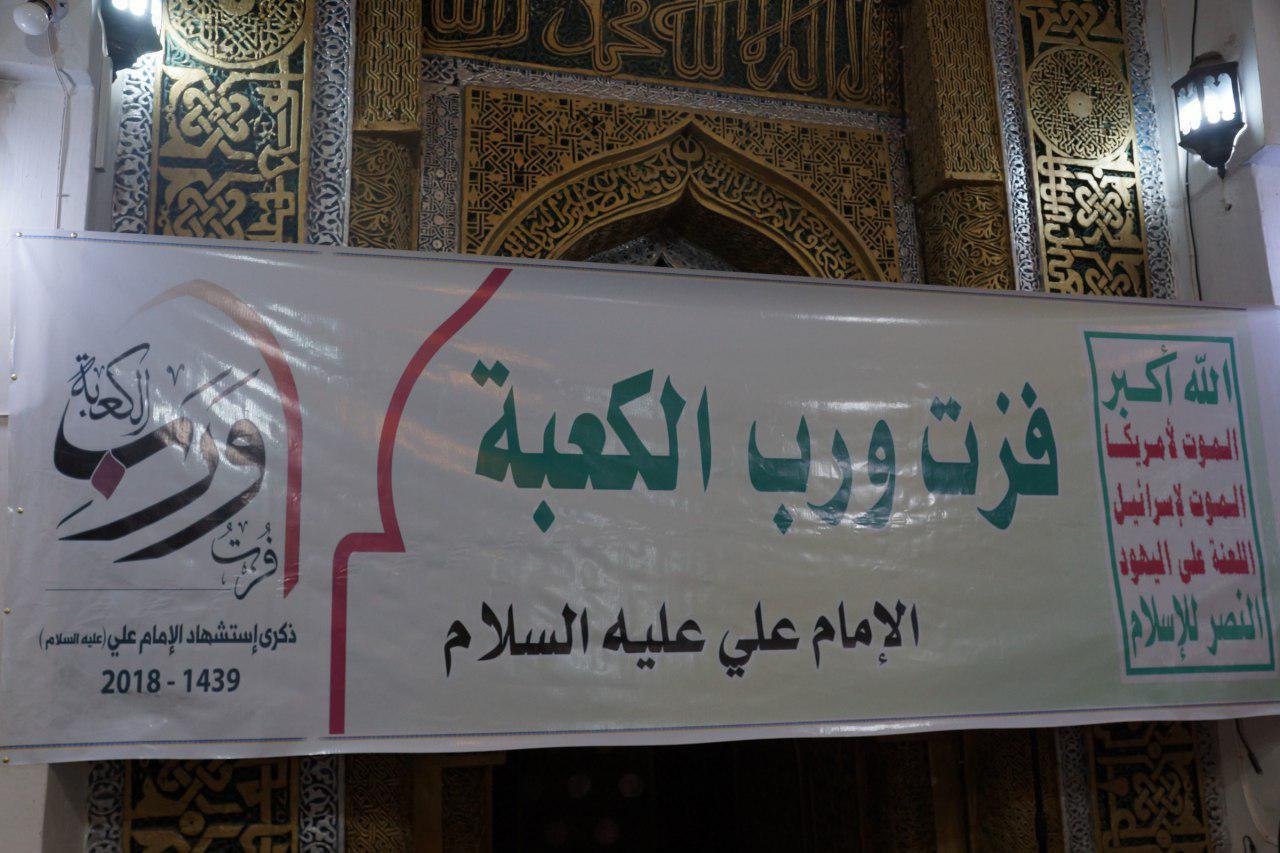 الله أكبر
الموت لأمريكا
الموت لإسرائيل
اللعنة على اليهود
النصر للإسلام
فزت ورب الكعبة
الإمام علي عليه السلام
فزتُ
ورب
الكعبة
ذكرى إستشهاد الإمام علي (عليه السلام)
2018 - 1439